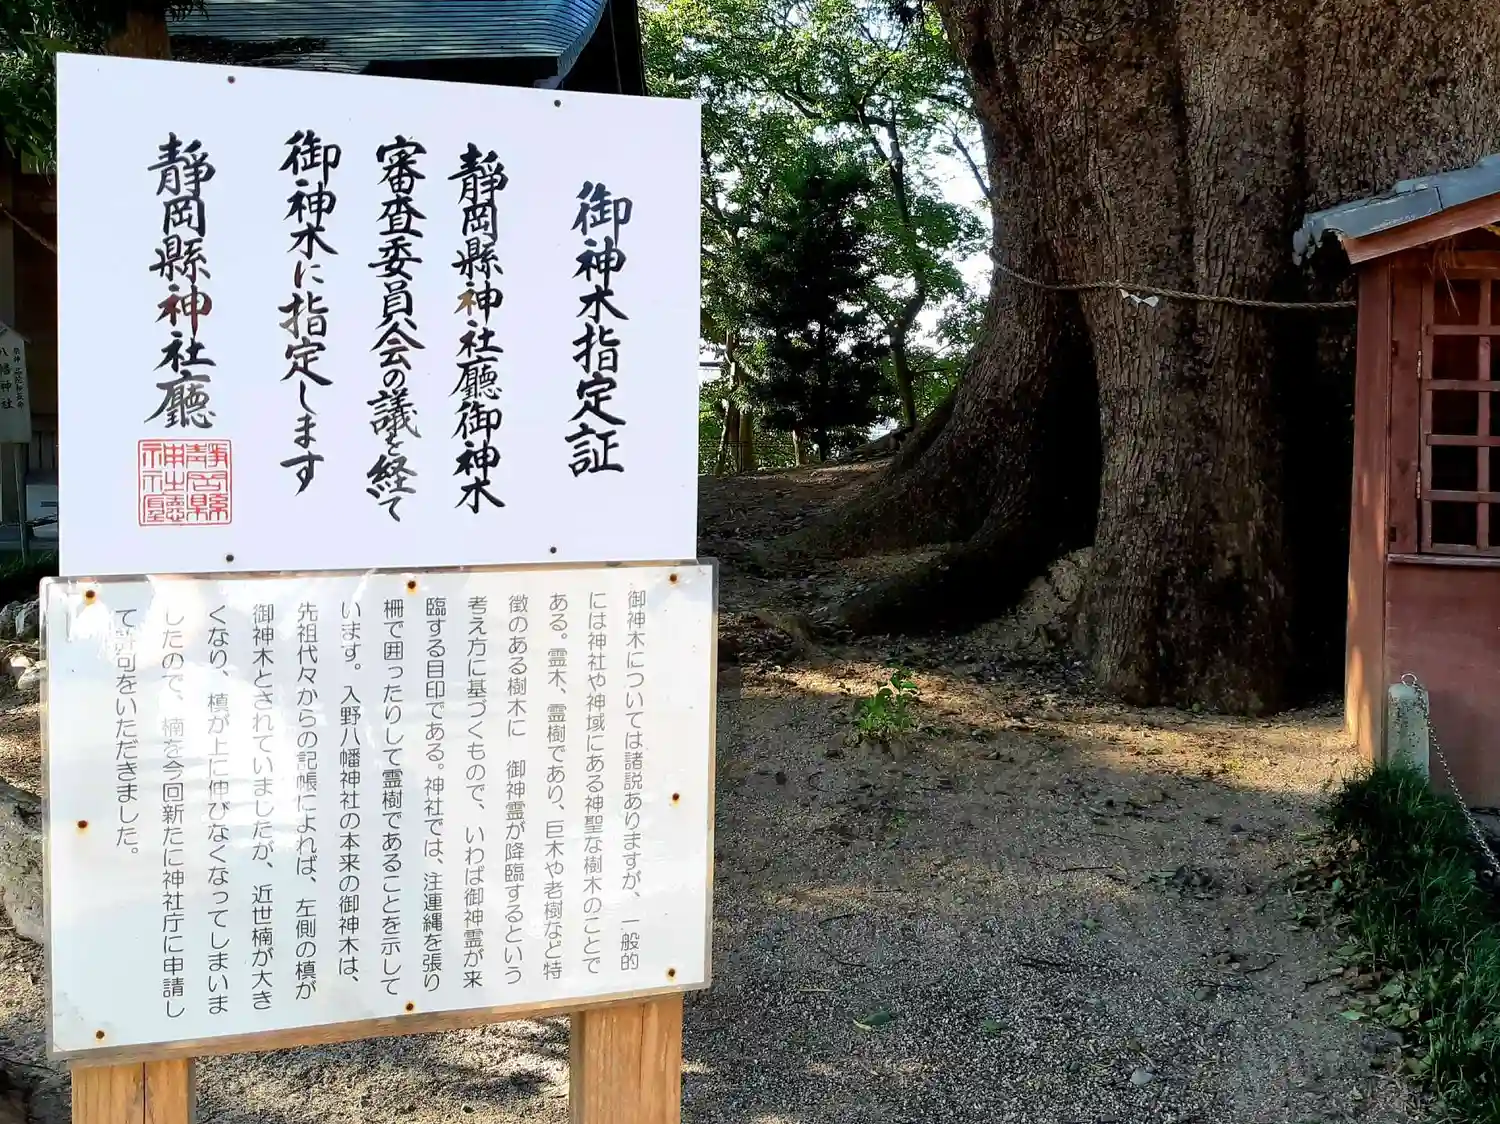 御神木指定証
静岡縣神社廳御神木
審査委員会の議を経て
御神木に指定します
静岡縣神社廳
静岡縣
神社廳
御神木については諸説ありますが、一般的
には神社や神域にある神聖な樹木のことで
ある。霊木、霊樹であり、巨木や老樹など特
徴のある樹木に 御神霊が降臨するという
考え方に基づくもので、いわば御神霊が来
臨する目印である。神社では、注連縄を張り
柵で囲ったりして霊樹であることを示して
います。入野八幡神社の本来の御神木は、
先祖代々からの記帳によれば、左側の槙が
御神木とされていましたが、近世楠が大き
くなり、槙が上に伸びなくなってしまいま
したので、楠を今回新たに神社庁に申請し
て許可をいただきました。
八幡神社